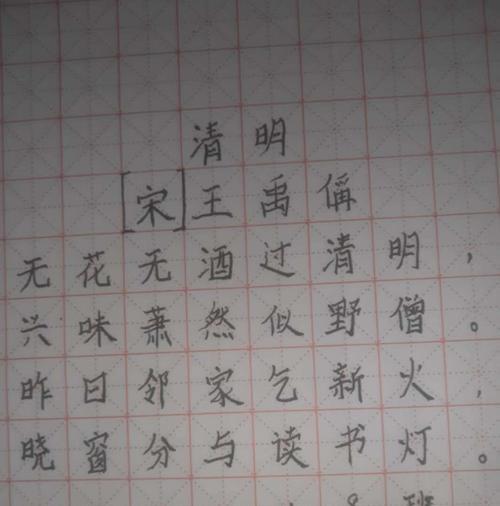 清明
[宋]王禹偁
无花无酒过清明，
兴味萧然似野僧。
昨日邻家乞新火，
晓窗分与读书灯。